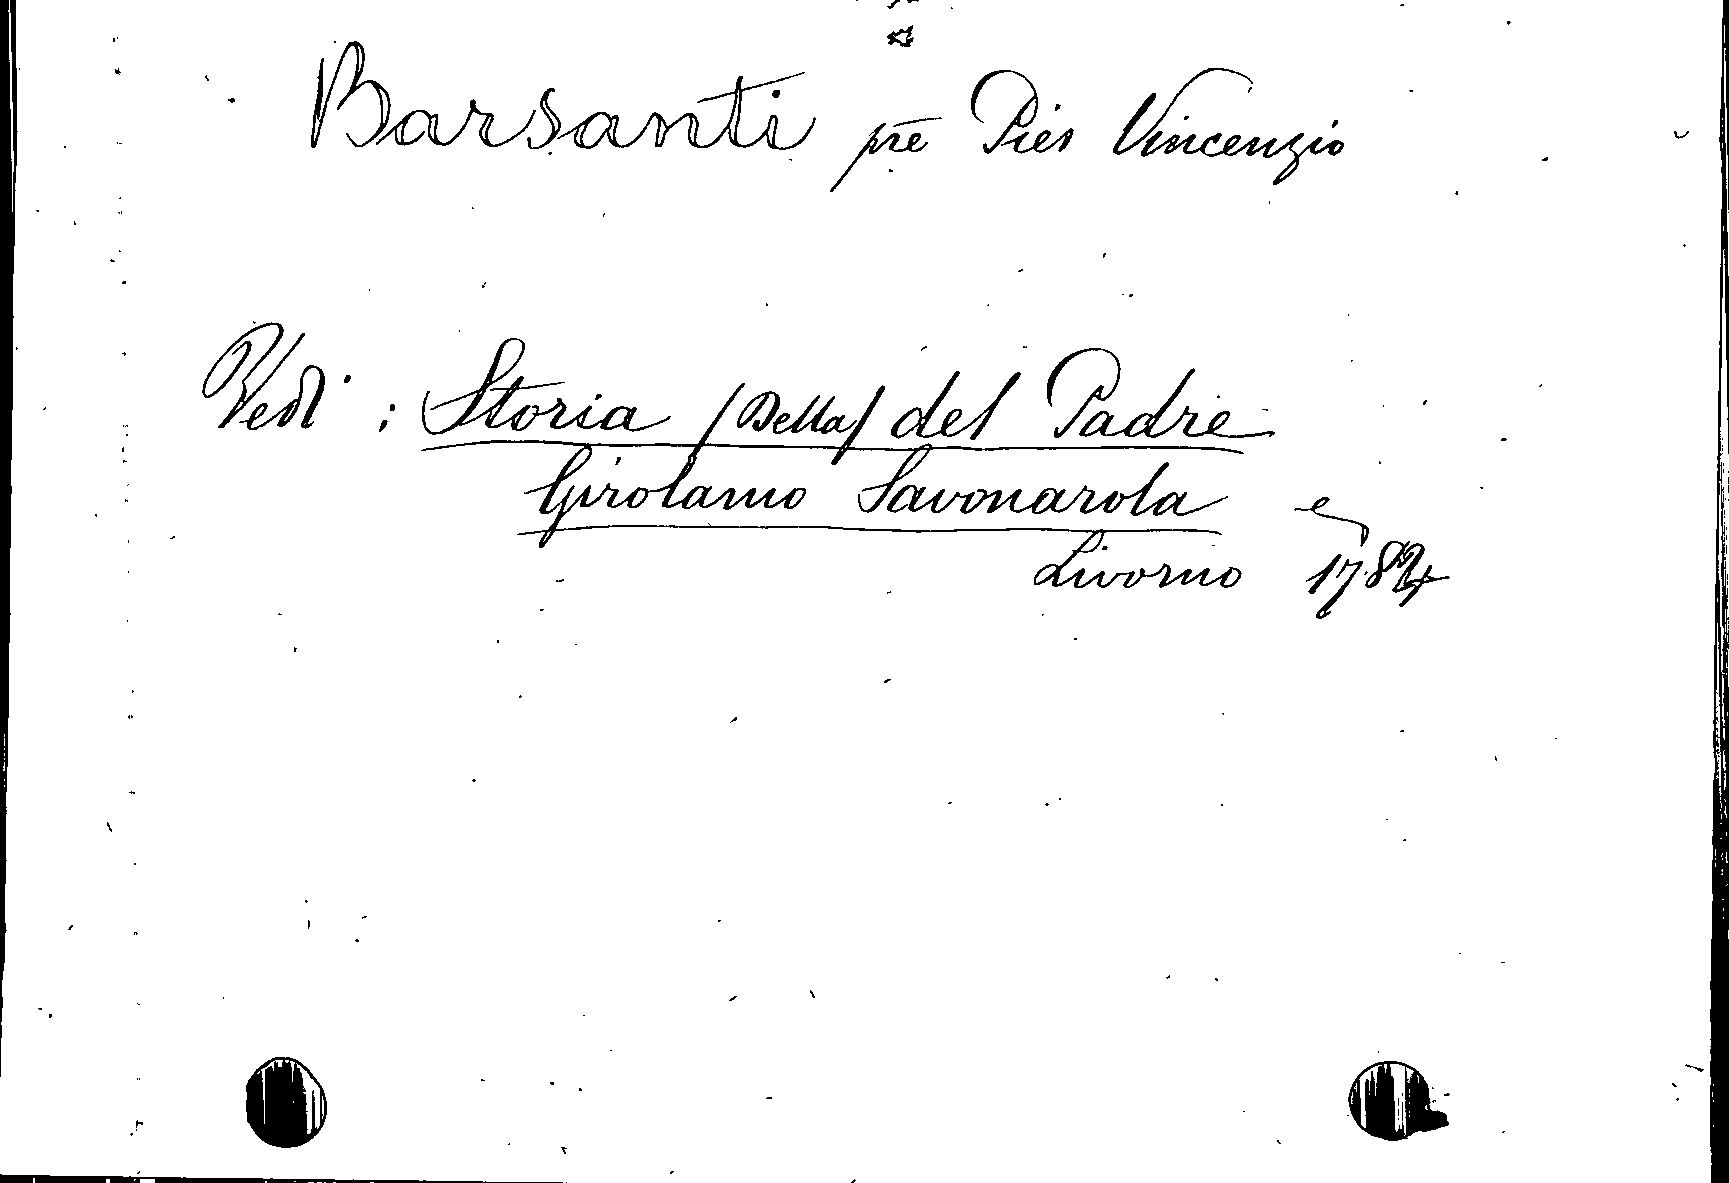 Barsanti pre Pier Vincenzio
Vedi : Storia (Della) del Padre
Girolamo Savonarola
Livorno 1782